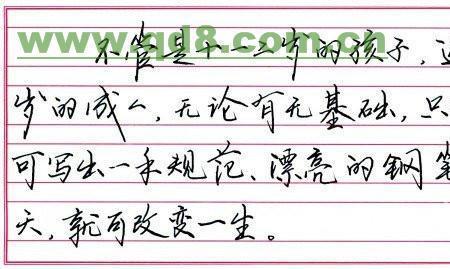 www.qd8.com.cn
不管是十一二岁的孩子,
岁的成人,无论有无基础,只
可写出一手规范、漂亮的钢笔
天,就可改变一生。